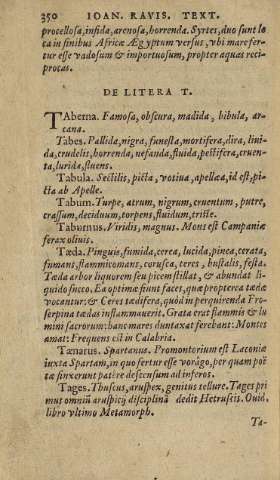 350 IOAN. RAVIS. TEXT.
procellosa, infida, arenosa, horrenda. Syrtes, duo sunt lo
ca in sinibus Africæ Ægyptum versus, vbi mare fer-
tur esse vadosum & importuosum, propter aquas reci-
procas.
DE LITERA T.
TAberna. Famosa, obscura, madida, bibula, ar-
cana.
Tabes. Pallida, nigra, funesta, mortifera, dira, livi-
da, crudelis, horrenda, nefanda, fluida, pestifera, cruen-
ta, lurida, fluens.
Tabula. Sectilis, picta, votiua, apellæa, id est, pi-
cta ab Apelle.
Tabum. Turpe, atrum, nigrum, cruentum, putre,
crassum, deciduum, torpens, fluidum, triste.
Taburnus. Viridis, magnus. Mons est Campaniæ
ferax oliuis.
Tæda. Pinguis, fumida, cerea, lucida, pinea, cerata,
fumans, flammivomans, corusca, teres, iugalis, festa.
Tæda arbor liquorem seu picem stillat, & abundat li-
quido succo. Ea optimæ fiunt faces, quæ propterea tædæ
vocantur: & Ceres tædifera, quòd in perquirenda Pro-
serpina tædas inflammauerit. Grata erat flammis & lu
mini sacrorum: hanc mares duntaxat ferebant: Montes
amat: Frequens est in Calabria.
Tænarus. Spartanus. Promontorium est Laconiæ
iuxta Spartam, in quo fertur esse vorago, per quam poë
tæ finxerunt patêre descensum ad inferos.
Tages. Thuscus, aruspex, genitus tellure. Tages pri
mus omniũ aruspicũ disciplinã dedit Hetruscis. Ouid.
libro vltimo Metamorph.
Ta-